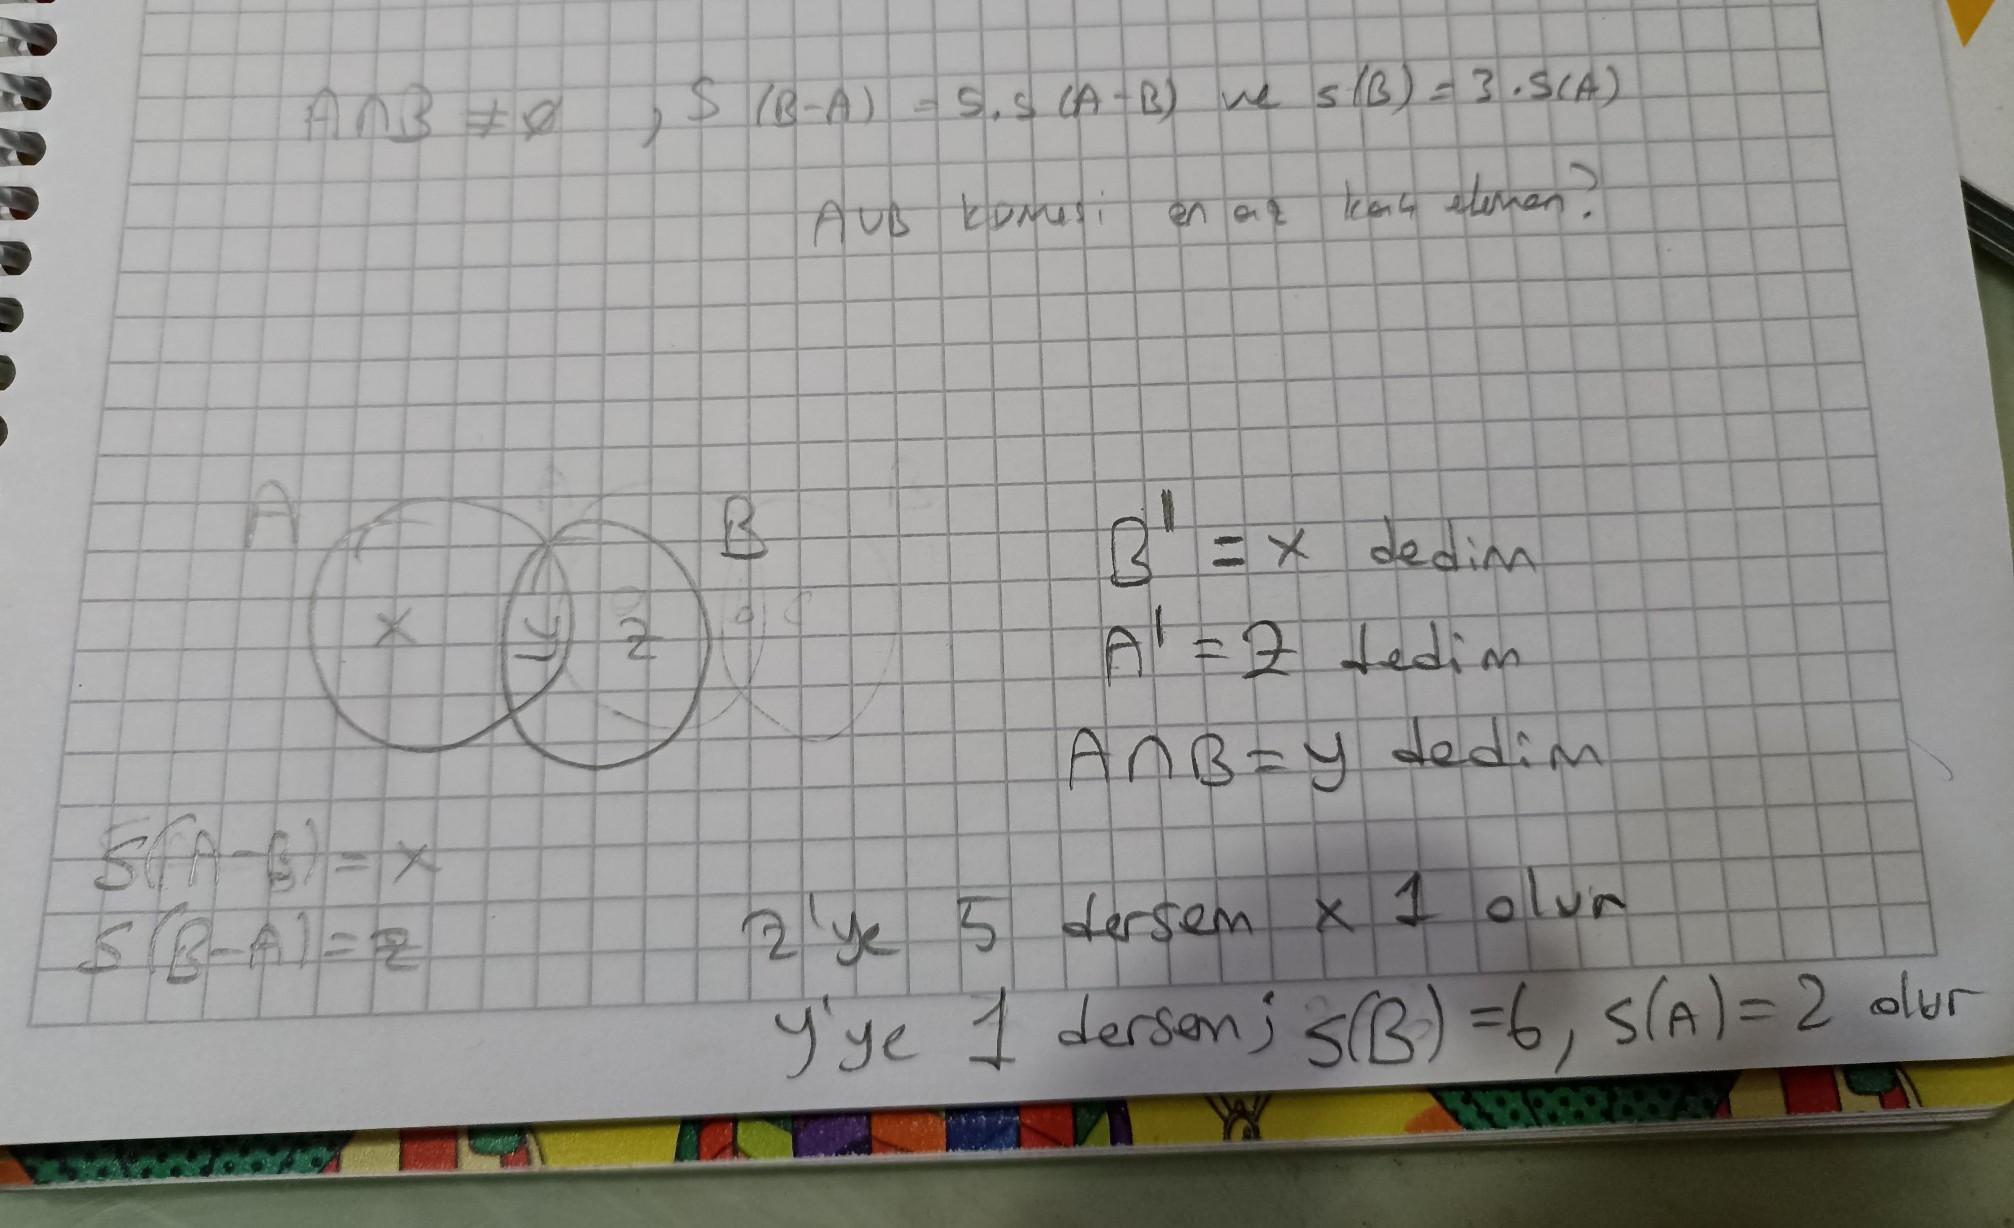 A∩B ≠ ∅ , S (B-A) = 5.S (A-B) ve S(B) = 3.S(A)
AUB kümesi en az kaç eleman?
A B
x y z
B' = x dedim
A' = z dedim
A∩B = y dedim
S(A-B) = x
S(B-A) = z
z'ye 5 dersem x 1 olur
y'ye 1 dersem; S(B) =6, S(A) = 2 olur